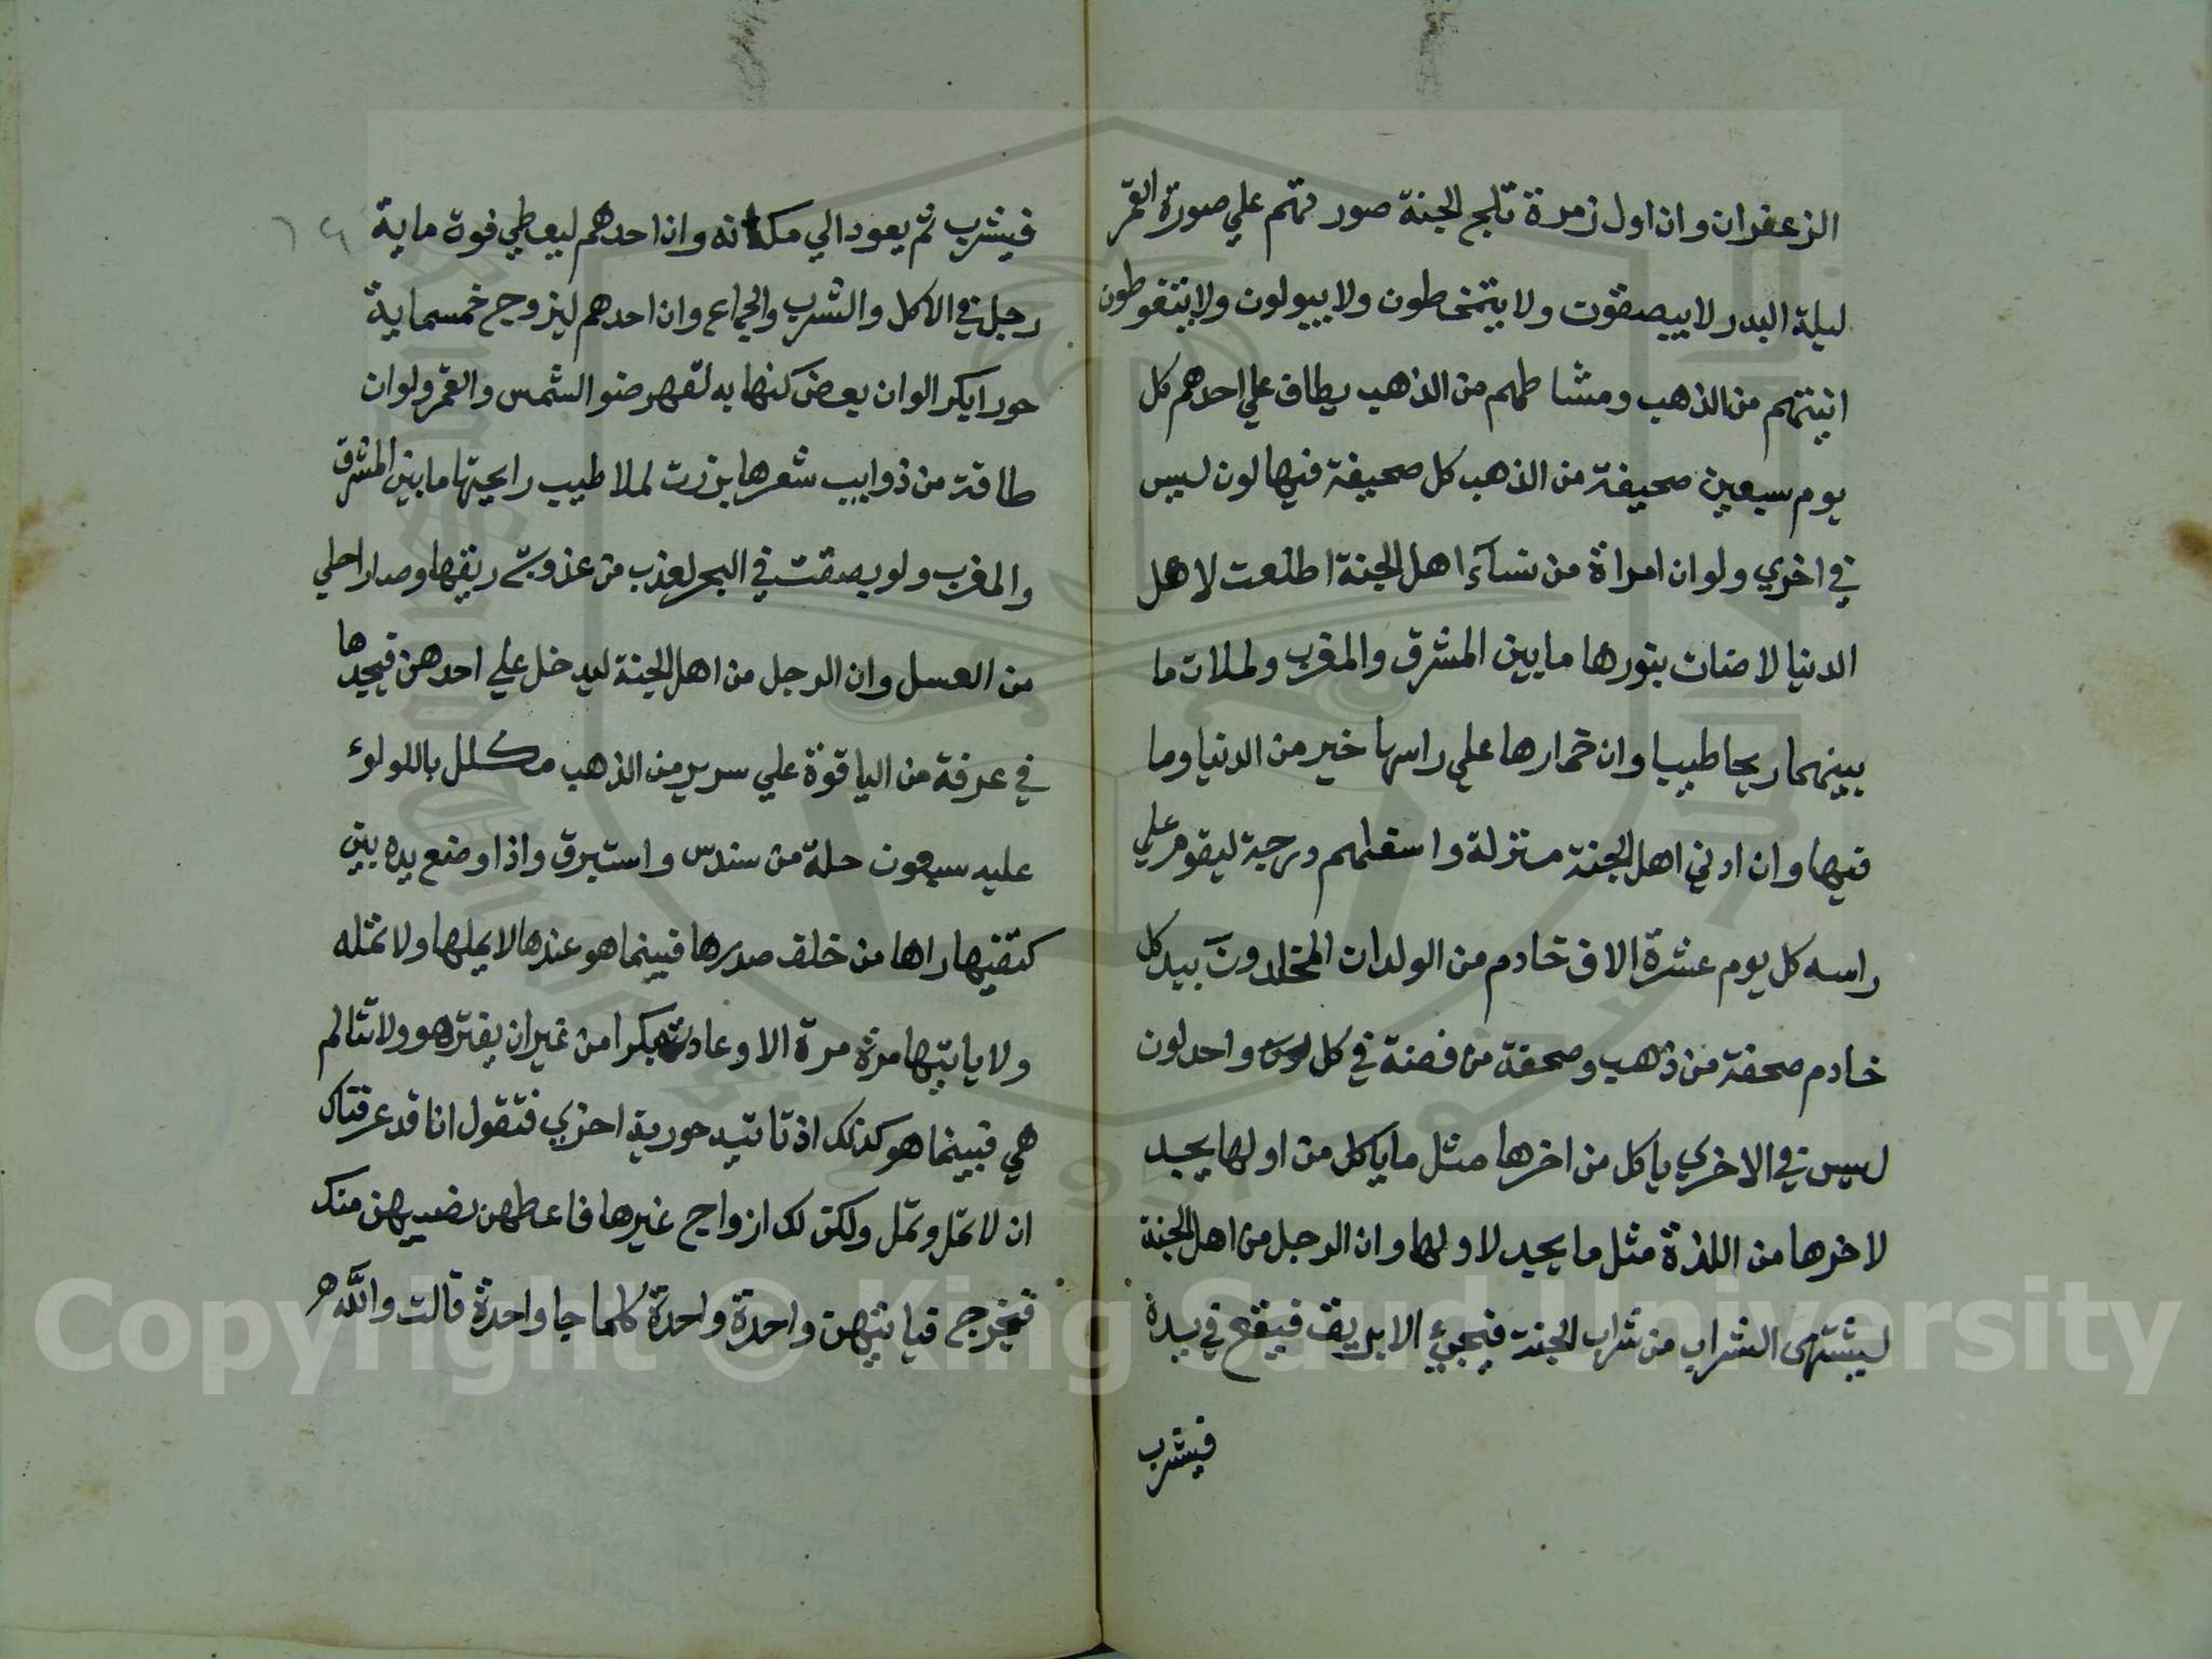 الزعفران وان اول زمرة تلج الجنة صورتهم علي صورة القمر
ليلة البدر لايبصقون ولا يتمخطون ولا يبولون ولا يتغوطون
انيتهم من الذهب ومشاطهم من الذهب يطاف علي احدهم كل
يوم سبعين صحيفة من الذهب كل صحيفة فيها لون ليس
في اخري ولوان امراة من نسآء اهل الجنة اطلعت لاهل
الدنيا لاضات بنورها مابين المشرق والمغرب ولملات ما
بينهما ريحا طيبا وان خمارها علي راسها خير من الدنيا وما
فيها وان ادني اهل الجنة منزلة واسفلهم درجة ليقوم علي
راسه كل يوم عشرة الاف خادم من الولدان المخلدون بيد كل
خادم صحفة من ذهب وصحفة من فضة في كل واحد لون
ليس في الاخري ياكل من اخرها مثل ماياكل من اولها يجد
لاخرها من اللذة مثل مايجد لاولها وان الرجل من اهل الجنة
ليشتهي الشراب من شراب الجنة فيجيء الابريق فيقع في يده
فيشرب
٦٤
فيشرب ثم يعود الي مكانه وان احدهم ليعطي قوة ماية
رجل في الاكل والشرب والجماع وان احدهم ليزوج خمسماية
حورا بكر الوان بعض كفها به لقهر ضو الشمس والقمر ولوان
طاقة من ذوايب شعرها برزت لملا طيب رايحتها مابين المشرق
والمغرب ولو بصقت في البحر لعذب من عذوبة ريقها وصار احلي
من العسل وان الرجل من اهل الجنة ليدخل علي احدهن فيجدها
في غرفة من الياقوتة علي سرير من الذهب مكلل باللولوء
عليه سبعون حلة من سندس واستبرق واذا وضع يده بين
كتفيها راها من خلف صدرها فبينما هو عندها لايملها ولا تمله
ولا ياتيها مرة مرة الا وعادت بكرا من غير ان يفتر هو ولا تتالم
هي فبينما هو كذلك اذ تاتيه حورية اخري فتقول انا قد عرفناك
ان لا تمل وتمل ولكن لك ازواج غيرها فاعطهن نصيبهن منك
فيخرج فياتيهن واحدة واحدة كلما جا واحدة قالت والله
Copyright © King Saud University
1957